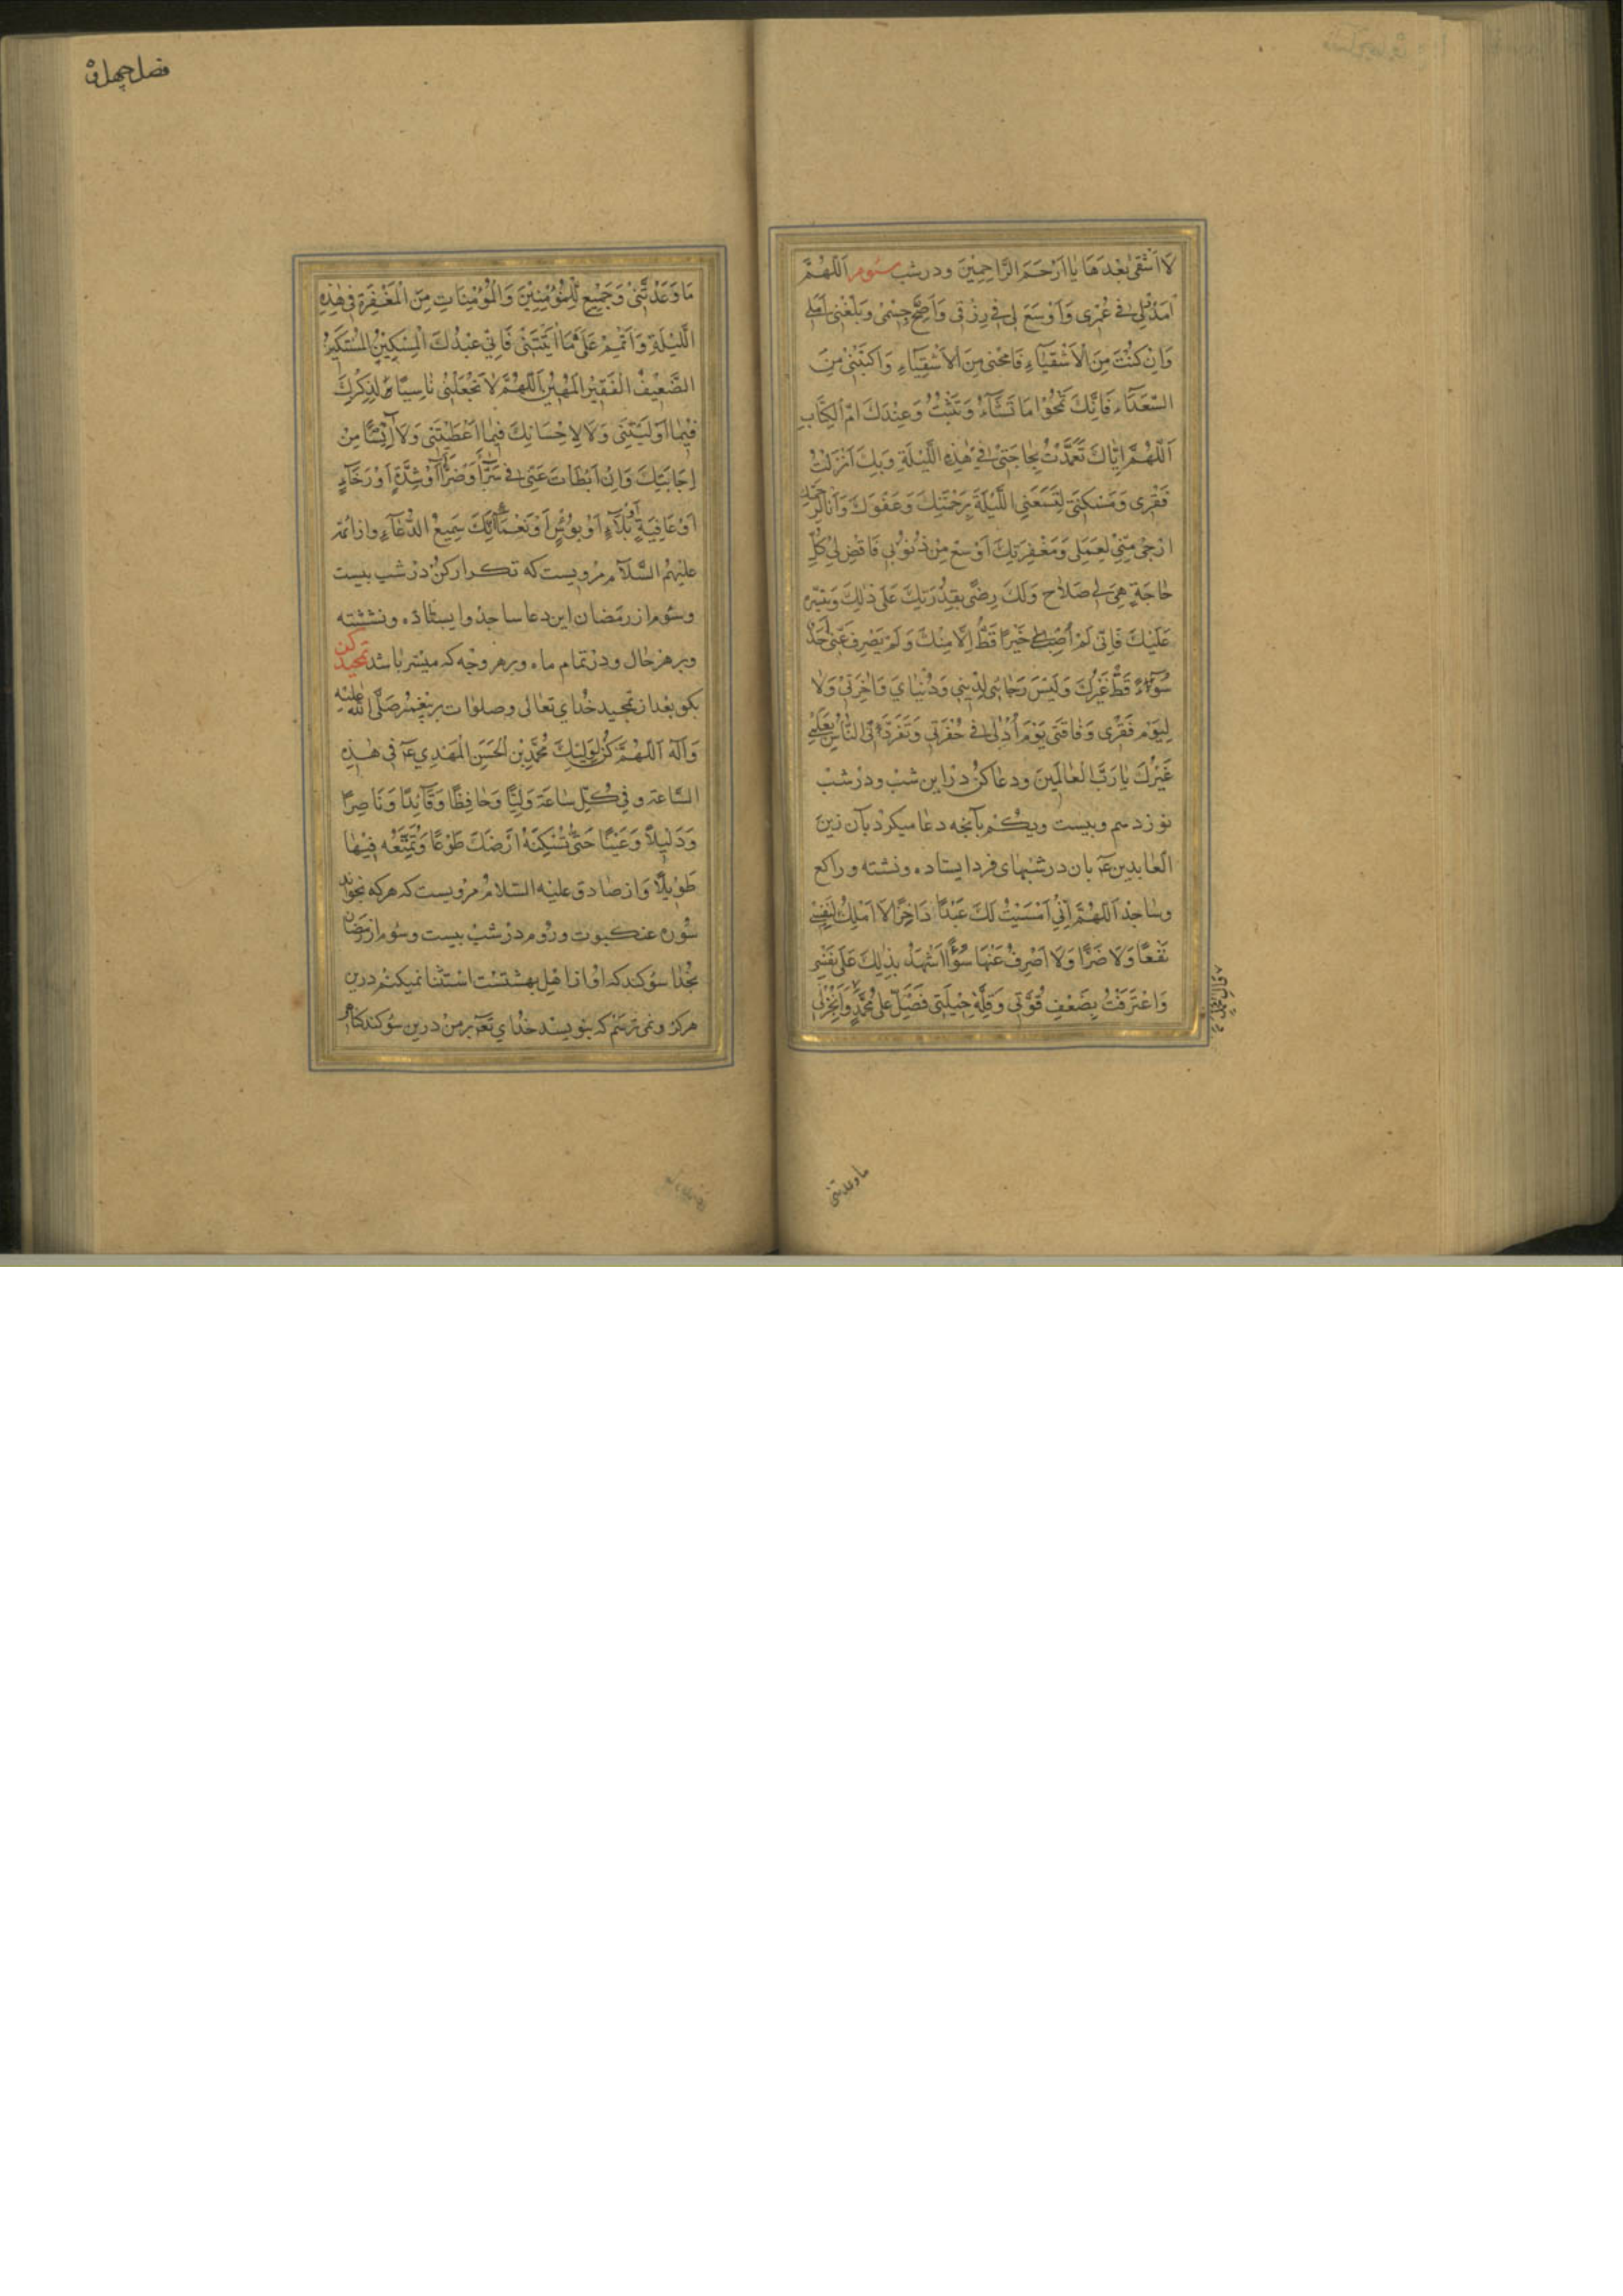 لَا اَشْقٰى بَعْدَهَا یٰا اَرْحَمَ الرَّاحِمِیْنَ ودر شب سئوم اَللّٰهُمَّ
اَمْدِدْ لِی فی عُمْرِی وَاَوْسِعْ لِی فی رِزْقی وَاَصِحَّ جِسْمی وَبَلِّغْنی اَمَلی
وَاِنْ كُنْتُ مِنَ الْاَشْقِیَآءِ فَامْحُنی مِنَ الْاَشْقِیَآءِ وَاكْتُبْنی مِنَ
السُّعَدَآءِ فَاِنَّكَ تَمْحُوْا مَا تَشَآءُ وَتُثْبِتُ وَعِنْدَكَ امّ الْكِتَابِ
اَللّٰهُمَّ اِیَّاكَ تَعَمَّدْتُ بِحَاجَتِیْ فِیْ هٰذِهِ اللَّیْلَةِ وَبِكَ اَنْزَلْتُ
فَقْرِی وَمَسْكَنَتی لِتَسَعَنِی اللَّیْلَةَ بِرَحْمَتِكَ وَعَفْوِكَ وَاَنَا لِرَحْمَتِكَ
ارْجٰى مِنّیْ لِعَمَلی وَمَغْفِرَتِكَ اَوْسَعُ مِنْ ذُنُوْبی فَاقْضِ لی كُلَّ
حٰاجَةٍ هِیَ لی صَلَاح وَلَكَ رِضًى بِقُدْرَتِكَ عَلٰى ذٰلِكَ وَتَیْسِیْرِهِ
عَلَیْكَ فَاِنّی لَمْ اُصِبْ خَیْرًا قَطُّ اِلَّا مِنْكَ وَلَمْ یَصْرِفْ عَنّی اَحَدٌ
سُوْٓءً قَطُّ غَیْرُكَ وَلَیْسَ رَجَائی لِدِیْنی وَدُنْیَایَ وَاٰخِرَتی وَلٰا
لِیَوْمِ فَقْرِی وَفَاقَتی یَوْمَ اُدْلٰى فی حُفْرَتی وَتَفَرَّدَ بی النَّاسُ بِعَمَلی
غَیْرُكَ یٰا رَبَّ الْعٰالَمِیْنَ ودعا كن در این شب ودر شب
نوزدهم وبیست ویكم بآنچه دعا میكرد بآن زین
العابدین ع بان در شبهای فرد ایستاده ونشسته وراكع
وساجد اَللّٰهُمَّ اِنّی اَمْسَیْتُ لَكَ عَبْدًا دَاخِرًا لَا اَمْلِكُ لِنَفْسی
نَفْعًا وَلَا ضَرًّا وَلَا اَصْرِفُ عَنْهَا سُوْٓءًا اَشْهَدُ بِذٰلِكَ عَلٰى نَفْسی
وَاعْتَرَفْتُ بِضَعْفِ قُوَّتی وَقِلَّةِ حِیْلَتی فَصَلِّ عَلٰى مُحَمَّدٍ وَاَنْجِزْ لی
ما وعدتنی
فصل چهل و
مَا وَعَدْتَنیْ وَجَمِیْعَ الْمُؤْمِنِیْنَ وَالْمُؤْمِنَاتِ مِنَ الْمَغْفِرَةِ فی هٰذِهِ
اللَّیْلَةِ وَاَتْمِمْ عَلَیَّ مَا اٰتَیْتَنیْ فَاِنّی عَبْدُكَ الْمِسْكِیْنُ الْمُسْتَكِیْنُ
الضَّعِیْفُ الْفَقِیْرُ الْمَهِیْنُ اَللّٰهُمَّ لَا تَجْعَلْنی نَاسِیًا لِذِكْرِكَ
فِیْمَا اَوْلَیْتَنِی وَلَا لِاِحْسَانِكَ فِیْمَا اَعْطَیْتَنی وَلَا اٰیِسًا مِنْ
اِجَابَتِكَ وَاِنْ اَبْطَأَتْ عَنّی فی سَرَّآءَ اَوْ ضَرَّآءَ اَوْ شِدَّةٍ اَوْ رَخَآءٍ
اَوْ عَافِیَةٍ اَوْ بَلَآءٍ اَوْ بُؤْسٍ اَوْ نَعْمَآءَ اِنَّكَ سَمِیْعُ الدُّعَآءِ واز ائمه
علیهم السَّلَام مرویست كه تكرار كن در شب بیست
وسئوم از رمضان این دعا ساجد وایستاده ونشسته
وبر هر حال ودر تمام ماه وبر هر وجه كه میسّر باشد تمجید كن
بگو بعد از تمجید خدای تعالی وصلوات بر پیغمبر صَلَّى اللّٰه عَلَیْهِ
وَآلِهِ اَللّٰهُمَّ كُنْ لِوَلِیِّكَ مُحَمَّدِ بْنِ الْحَسَنِ الْمَهْدِی ع فی هٰذِهِ
السَّاعَةِ وفی كُلِّ سَاعَةٍ وَلِیًّا وَحَافِظًا وَقَآئِدًا وَنَاصِرًا
وَدَلِیْلًا وَعَیْنًا حَتّٰى تُسْكِنَهُ اَرْضَكَ طَوْعًا وَتُمَتِّعَهُ فِیْهَا
طَوِیْلًا وَاز صادق علیه السّلام مرویست كه هر كه بخواند
سوره عنكبوت وروم در شب بیست وسئوم از رمضان
بخدا سوگند كه او از اهل بهشتست استثنا نمیكنم درین
هرگز ونمی ترسم كه بنویسد خدای تع بر من درین سوگند گناهی